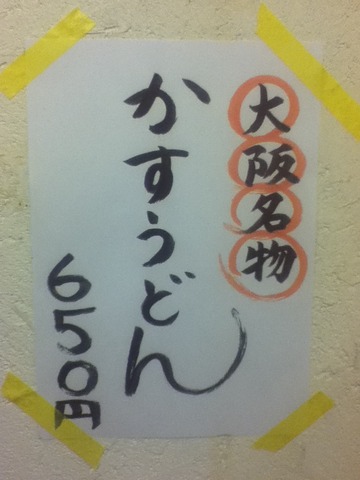 大阪名物
かすうどん
650円